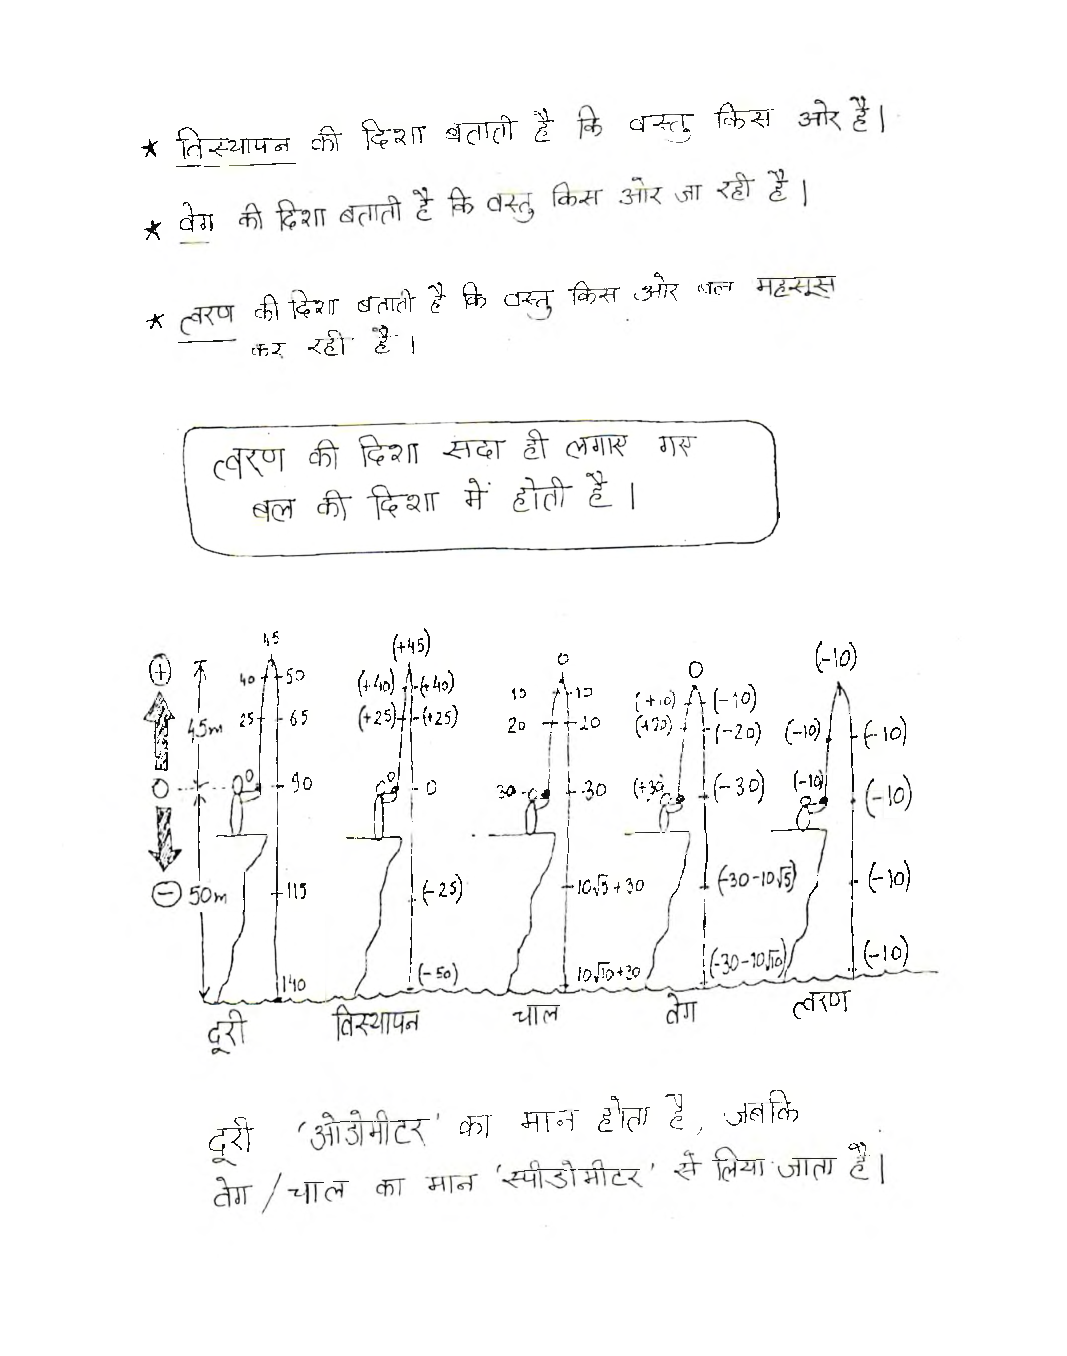 ★ विस्थापन की दिशा बताती है कि वस्तु किस ओर है।
★ वेग की दिशा बताती है कि वस्तु किस ओर जा रही है।
★ त्वरण की दिशा बताती है कि वस्तु किस ओर बल महसूस
कर रही है।
त्वरण की दिशा सदा ही लगाए गए
बल की दिशा में होती है।
45 (+45) 0 0 (-10)
+ 40 50 (+40) (+40) 10 10 (+10) (-10)
45m 25 65 (+25) (+25) 20 20 (+20) (-20) (-10) (-10)
0 0 90 0 0 30 30 (+30) (-30) (-10) (-10)
- 50m 115 (-25) 10√5+30 (-30-10√5) (-10)
140 (-50) 10√10+30 (-30-10√10) (-10)
दूरी विस्थापन चाल वेग त्वरण
दूरी 'ओडोमीटर' का मान होता है, जबकि
वेग / चाल का मान 'स्पीडोमीटर' से लिया जाता है।